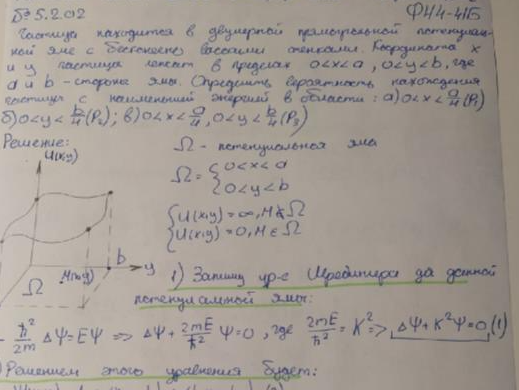 БЭ 5.202 ФН4-41Б
Частица находится в двумерной прямоугольной потенциаль-
ной яме с бесконечно высокими стенками. Координата x
и y частицы лежат в пределах 0<x<a, 0<y<b, где
a и b - стороны ямы. Определить вероятность нахождения
частицы с наименьшей энергией в области: а) 0<x<a/4 (P₁)
б) 0<y<b/4 (P₂); в) 0<x<a/4, 0<y<b/4 (P₃)
Решение:
Ω - потенциальная яма
U(x,y)
Ω = { 0<x<a
0<y<b
{ U(x,y) = ∞, M∉Ω
U(x,y) = 0, M∈Ω
b y
M(x,y)
Ω
1) Запишу ур-е Шредингера для данной
потенциальной ямы:
- ħ²/2m ΔΨ = EΨ => ΔΨ + 2mE/ħ² Ψ = 0, где 2mE/ħ² = K² => ΔΨ + K²Ψ = 0 (1)
Решением этого уравнения будет: